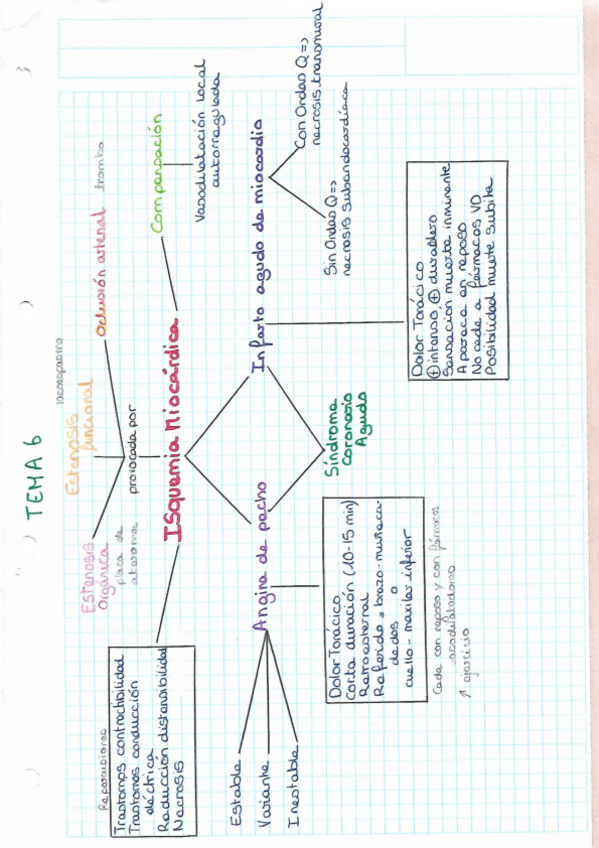 TEMA 6
Estenosis
Orgánica
placa de
ateroma
Estenosis
funcional
vasoespasmo
Oclusión arterial
trombo
provocada por
Isquemia Miocárdica
Compensación
Vasodilatación local
autorregulada
Repercusiones
Trastornos contractibilidad
Trastornos conducción
eléctrica
Reducción distensibilidad
Necrosis
Angina de pecho
Infarto agudo de miocardio
Estable
Variante
Inestable
Síndrome
Coronario
Agudo
Sin Ondas Q =>
necrosis subendocárdica
Con Ondas Q =>
necrosis transmural
Dolor Torácico
Corta duración (10-15 min)
Retroesternal
Referido = brazo-muñeca-
dedos o
cuello - maxilar inferior
Cede con reposo y con fármacos
vasodilatadores
↑ ejercicio
Dolor Torácico
⊕ intenso, ⊕ duradero
Sensación muerte inminente
Aparece en reposo
No cede a fármacos VD
Posibilidad muerte súbita